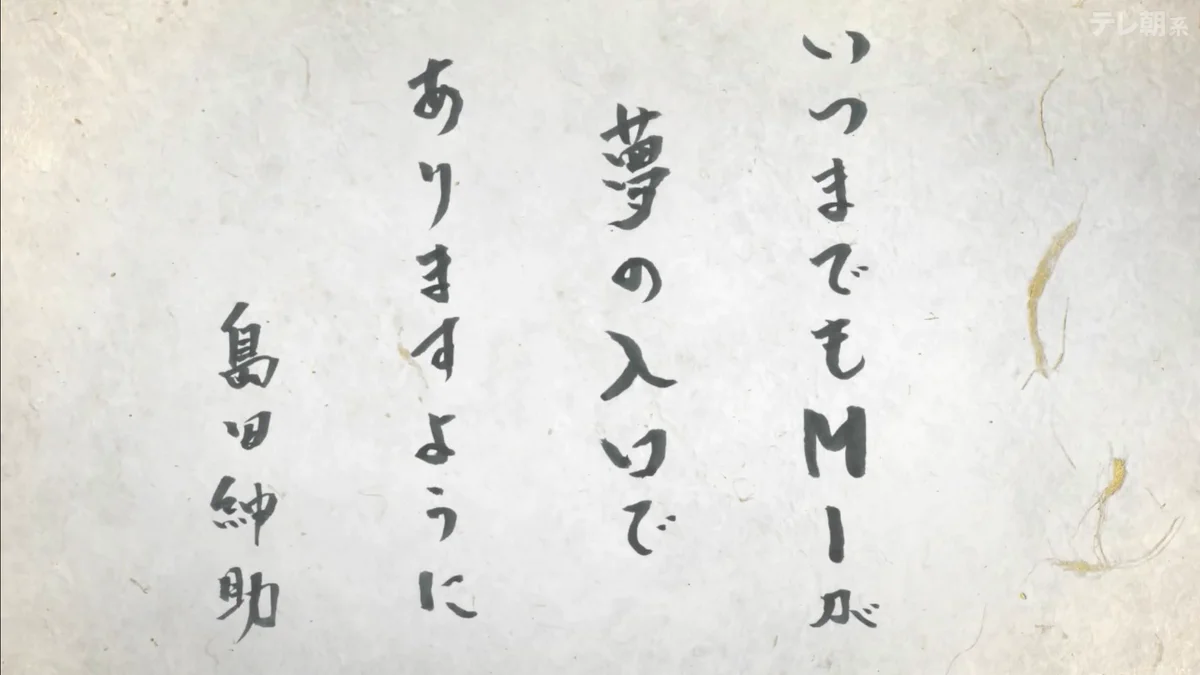 テレ朝系
いつまでもM1が
夢の入口で
ありますように
島田紳助